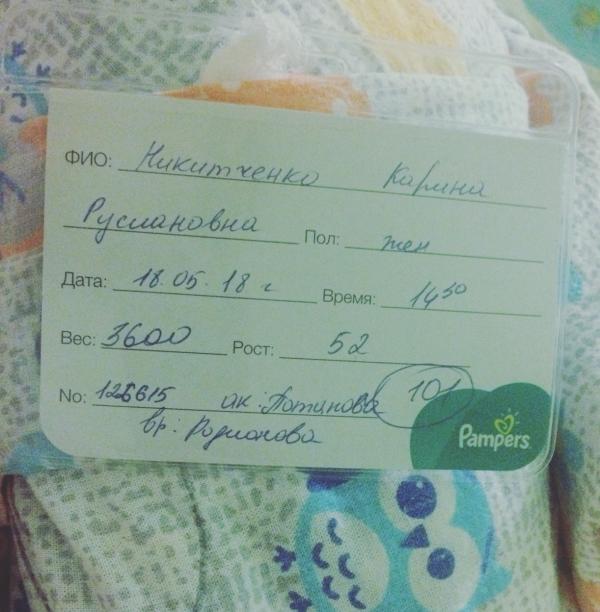 ФИО: Никитченко Карина
Руслановна Пол: жен
Дата: 18.05.18 г Время: 14 30
Вес: 3600 Рост: 52
No: 126615 ак: Потанова 101
вр: Родионова
Pampers